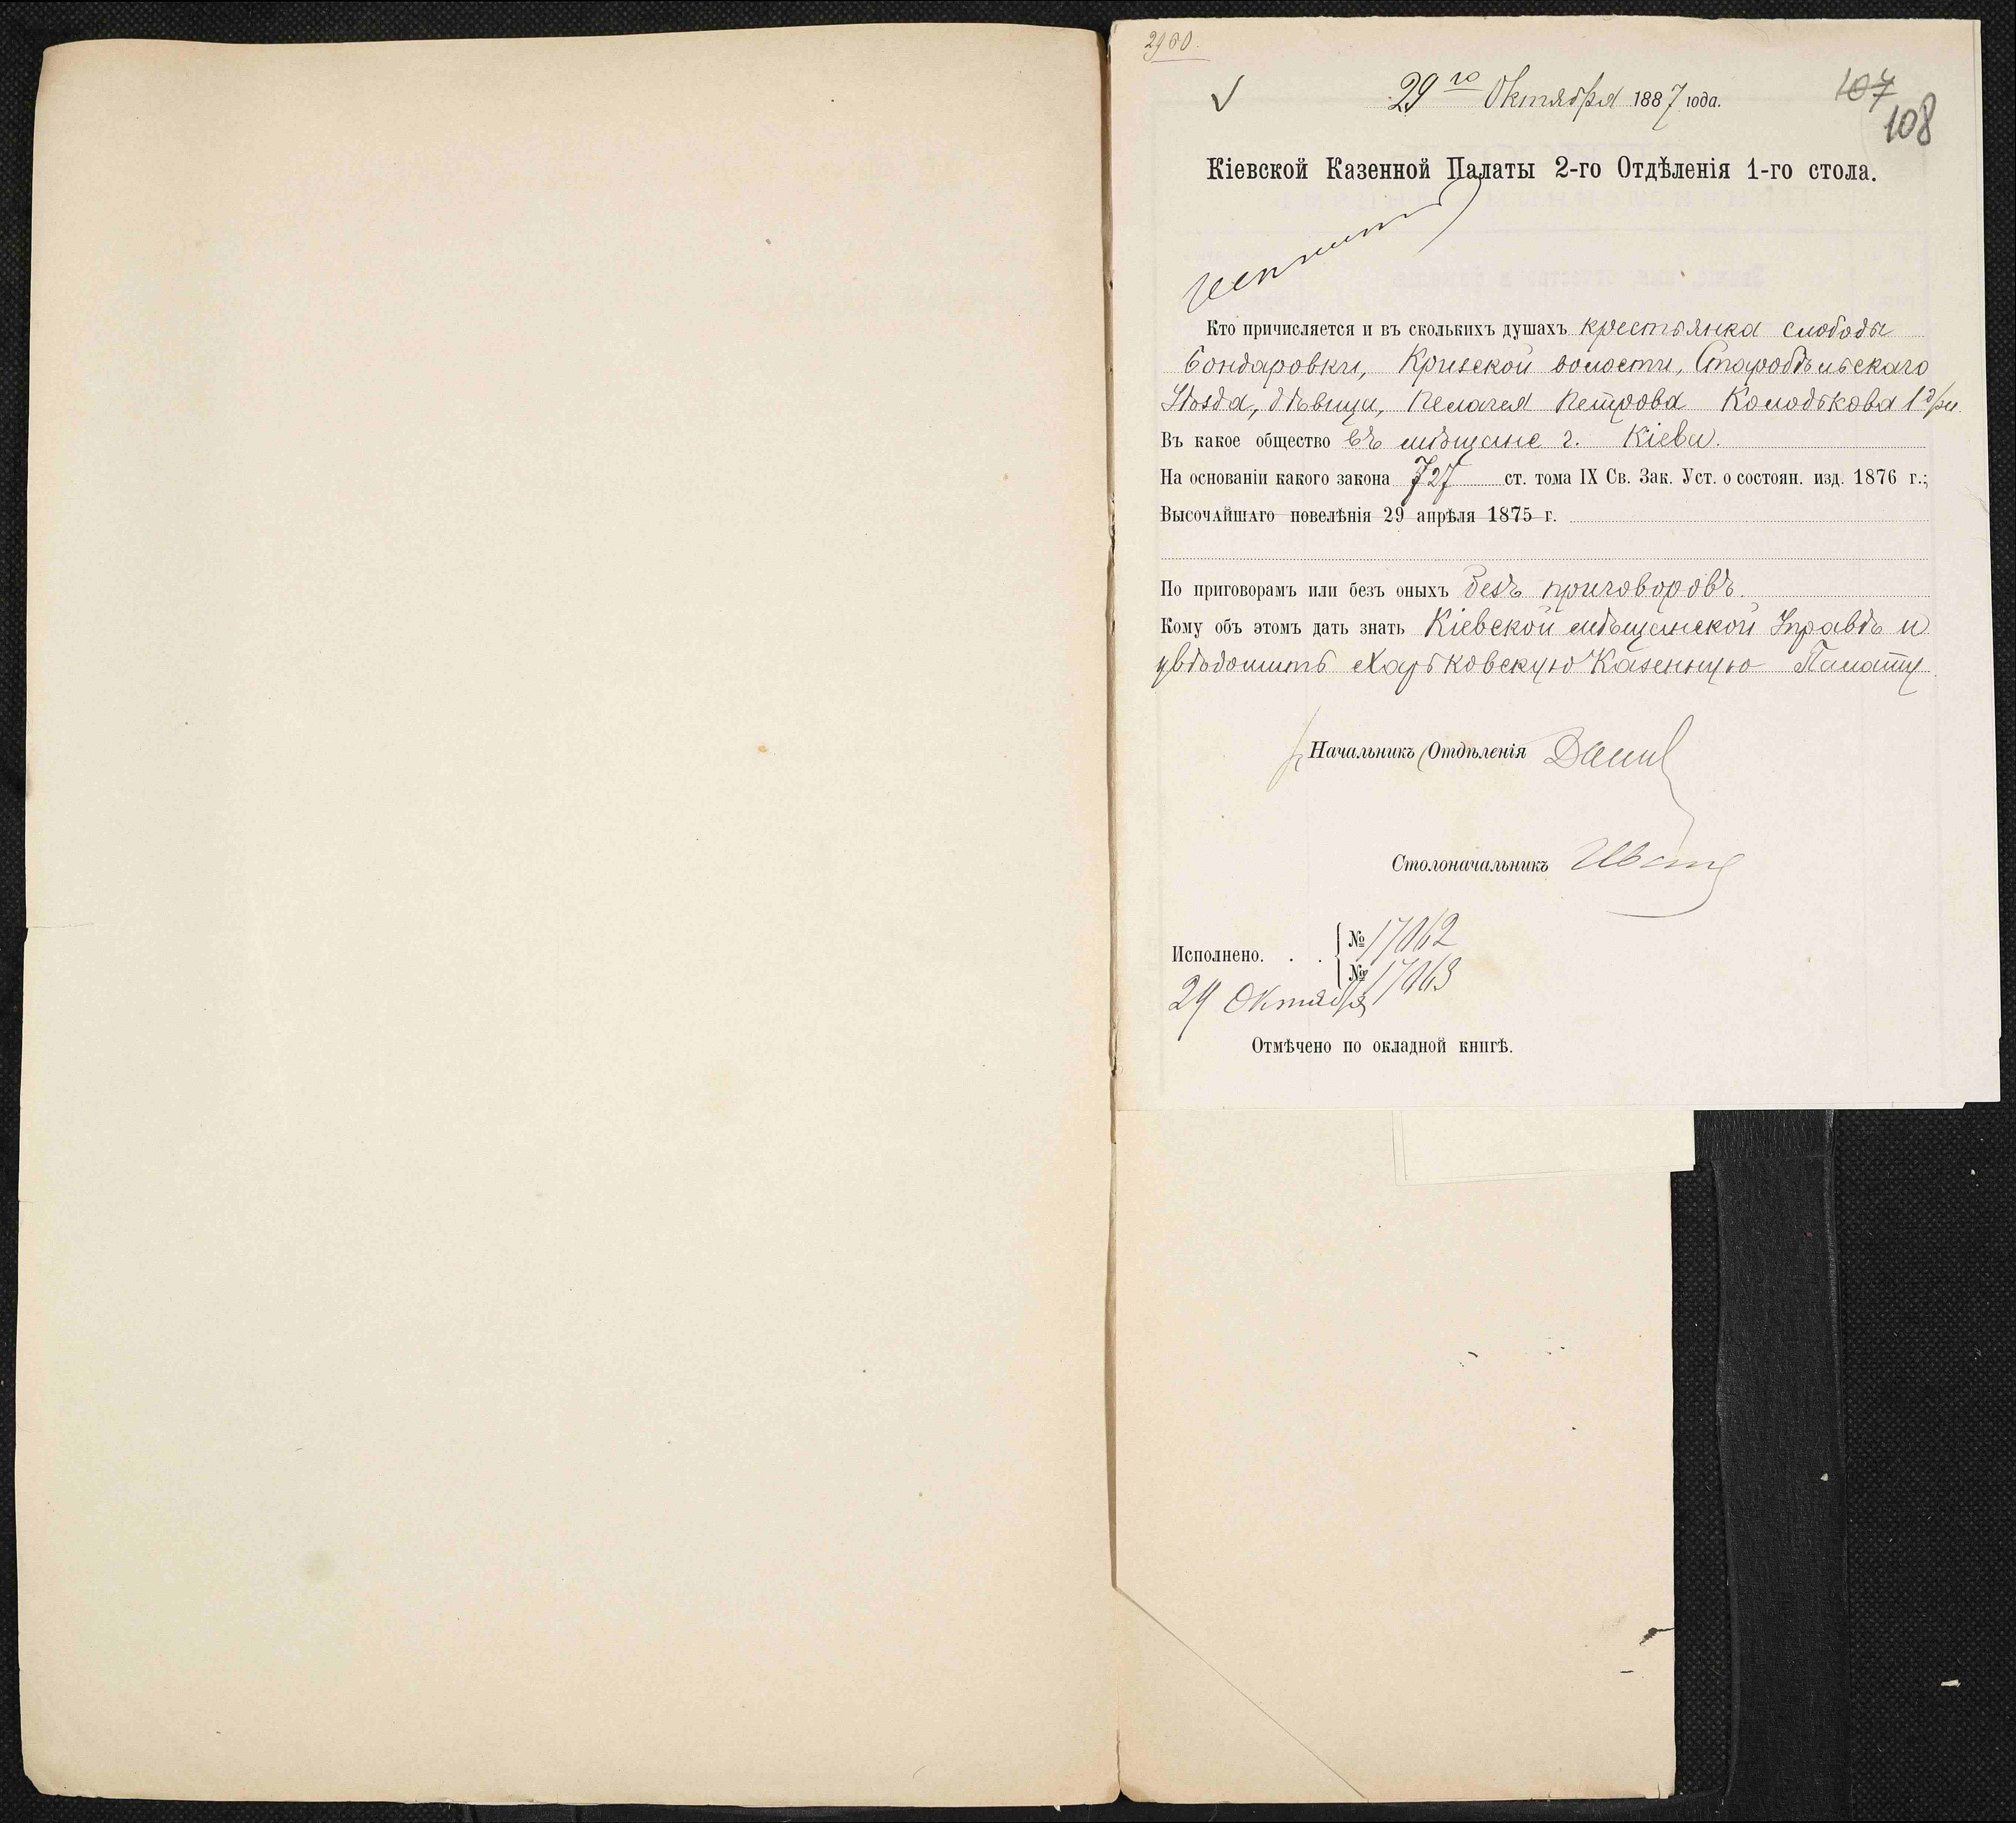 2960.
29го Октября 1887 года.
107
108
Кіевской Казенной Палаты 2-го Отдѣленія 1-го стола.
Кто причисляется и въ сколькихъ душахъ крестьянка слободы
Бондаровки, Кризской волости, Старобѣльскаго
Уѣзда, дѣвица, Пелагея Петрова Колодькова 1
Въ какое общество въ мѣщане г. Кіева.
На основаніи какого закона 727 ст. тома IX Св. Зак. Уст. о состоян. изд. 1876 г.;
Высочайшаго повелѣнія 29 апрѣля 1875 г.
По приговорамъ или безъ оныхъ безъ приговоровъ.
Кому объ этомъ дать знать Кіевской мѣщанской Управѣ и
увѣдомить Харьковскую Казенную Палату
Начальникъ Отдѣленія
Столоначальникъ
Исполнено. . . № 17062
№ 17063
29 Октября
Отмѣчено по окладной книгѣ.